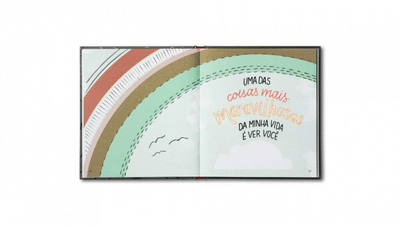 UMA DAS
coisas mais
maravilhosas
DA MINHA VIDA
É VER VOCÊ